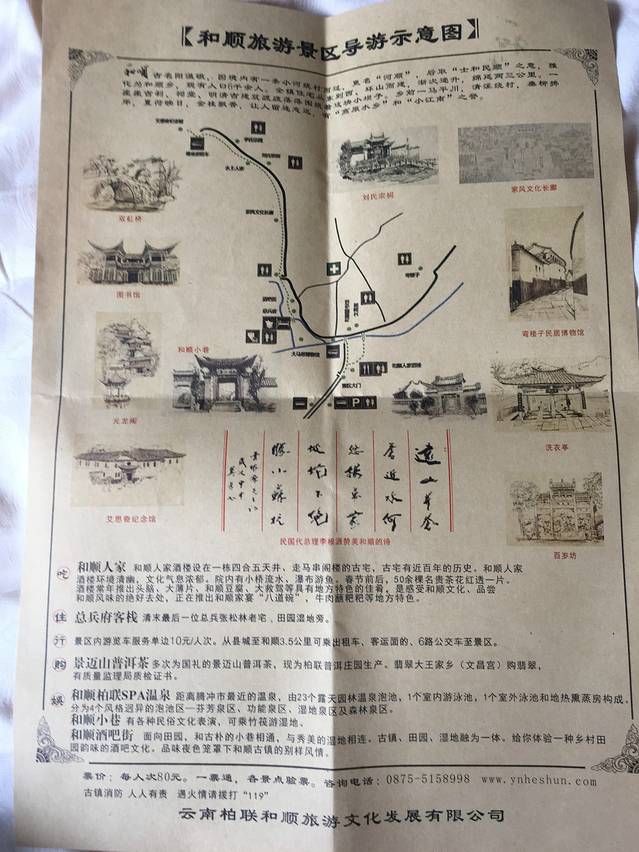 【和顺旅游景区导游示意图】
和顺 古名阳温暾，因境内有一条小河绕村而过，更名“河顺”，后取“士和民顺”之意，雅
化为和顺乡，现有人口6千余人。全镇住宅从东到西，环山而建，渐次递升，绵延两三公里，一
座座古刹、祠堂、明清古建筑疏疏落落围绕着这块小坝子。乡前一马平川，清溪绕村，垂柳拂
岸，夏荷映日，金桂飘香，让人留连忘返，有“高原水乡”和“小江南”之誉。
双虹桥
刘氏宗祠
家风文化长廊
图书馆
弯楼子民居博物馆
和顺小巷
元龙阁
洗衣亭
艾思奇纪念馆
百岁坊
艾思奇纪念馆
水上人家
家风文化长廊
弯楼子
总兵府
大马帮博物馆
和顺人家酒楼
景区大门
P
远山茫苍苍
近水何悠扬
万家坡坨下
绝胜小苏杭
民国代总理李根源赞美和顺的诗
吃 和顺人家 和顺人家酒楼设在一栋四合五天井、走马串阁楼的古宅，古宅有近百年的历史。和顺人家
酒楼环境清幽，文化气息浓郁。院内有小桥流水、瀑布游鱼。春节前后，50余棵名贵茶花红透一片。
酒楼常年推出头脑、大薄片、和顺豆腐、大救驾等具有地方特色的佳肴，是感受和顺文化、品尝
和顺风味的绝好去处，正在推出和顺家宴“八道碗”、牛肉蘸粑粑等地方特色。
住 总兵府客栈 清末最后一位总兵张松林老宅，田园湿地旁。
行 景区内游览车服务单边10元/人次。从县城至和顺3.5公里可乘出租车、客运面的、6路公交车至景区。
购 景迈山普洱茶 多次为国礼的景迈山普洱茶，现为柏联普洱庄园生产。翡翠大王家乡（文昌宫）购翡翠，
有质量监理局质检证书。
娱 和顺柏联SPA温泉 距离腾冲市最近的温泉，由23个露天园林温泉泡池，1个室内游泳池，1个室外泳池和地热熏蒸房构成。
分为4个风格迥异的泡池区—芬芳泉区、功能泉区、湿地泉区及森林泉区。
和顺小巷 有各种民俗文化表演，可乘竹筏游湿地、
和顺酒吧街 面向田园、和古朴的小巷相通，与秀美的湿地相连。古镇、田园、湿地融为一体。给你体验一种乡村田
园韵味的酒吧文化。品味夜色笼罩下和顺古镇的别样风情。
票价：每人次80元。一票通，各景点验票。咨询电话：0875-5158998 www.ynheshun.com
古镇消防 人人有责 遇火情请拨打“119”
云南柏联和顺旅游文化发展有限公司